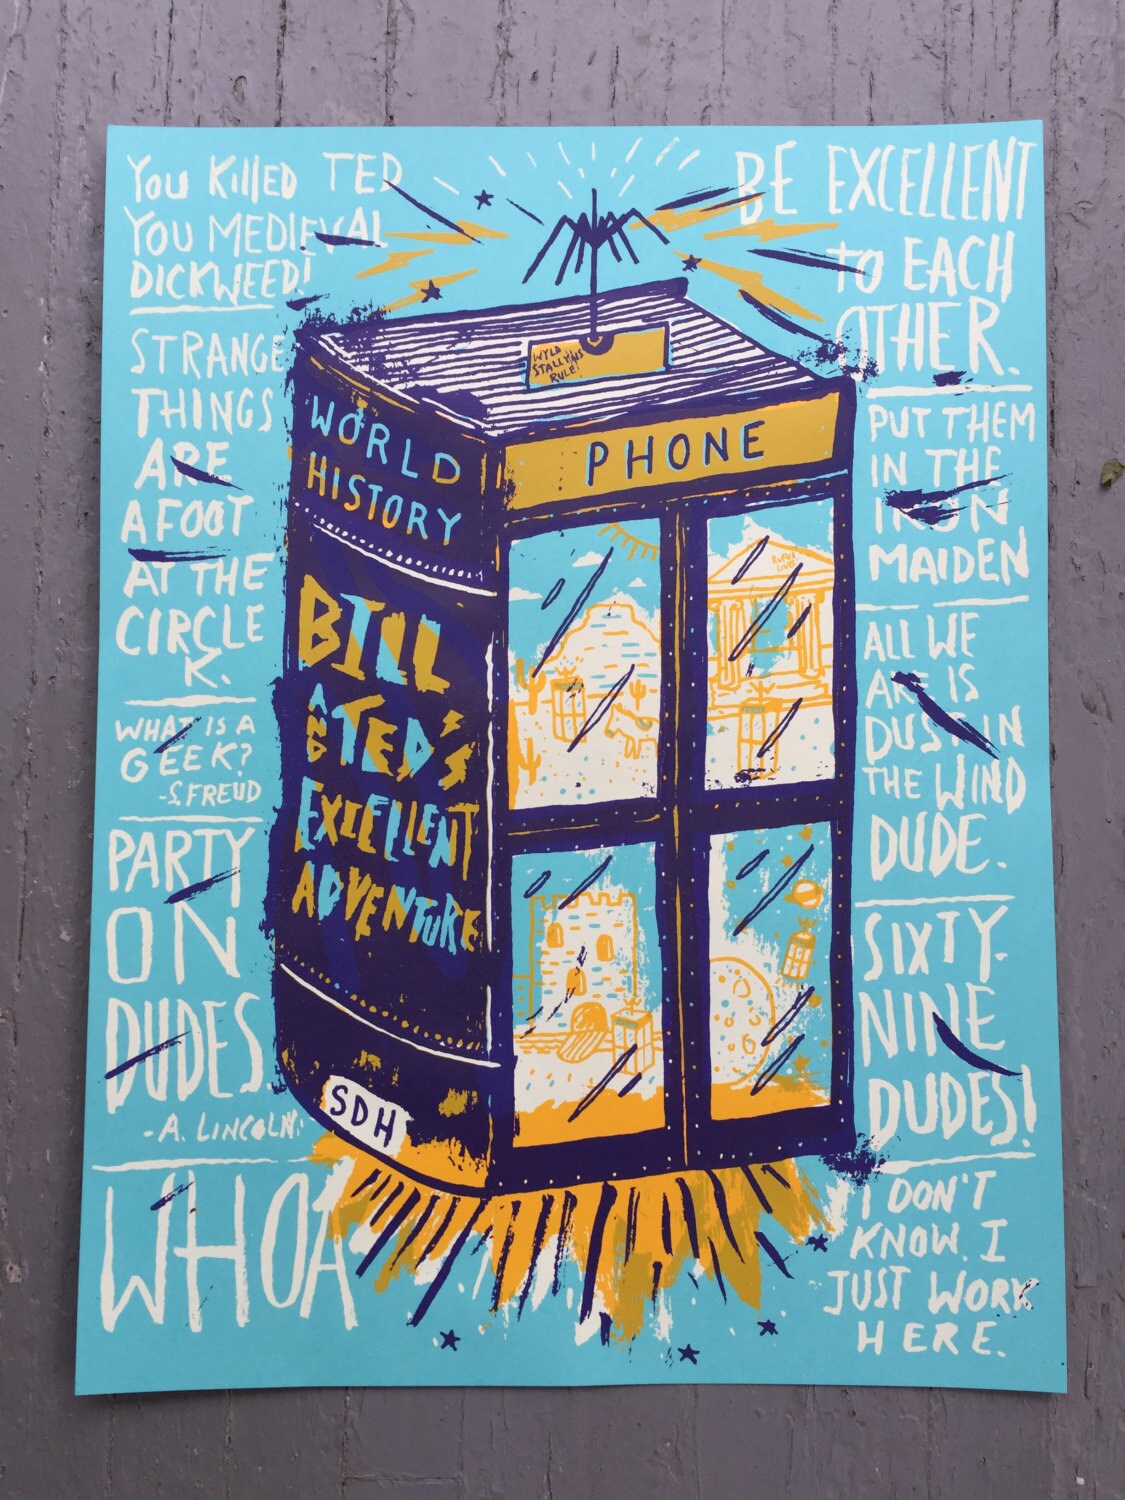 YOU KILLED TED
YOU MEDIEVAL
DICKWEED!
STRANGE
THINGS
ARE
AFOOT
AT THE
CIRCLE
K.
WHAT IS A
GEEK?
-S. FREUD
PARTY
ON
DUDES.
-A. LINCOLN.
WHOA
WYLD
STALLYNS
RULE!
PHONE
WORLD
HISTORY
BILL
AND
TED'S
EXCELLENT
ADVENTURE
SDH
RUFUS
LIVES
BE EXCELLENT
TO EACH
OTHER.
PUT THEM
IN THE
IRON
MAIDEN
ALL WE
ARE IS
DUST IN
THE WIND
DUDE.
SIXTY-
NINE
DUDES!
I DON'T
KNOW. I
JUST WORK
HERE.